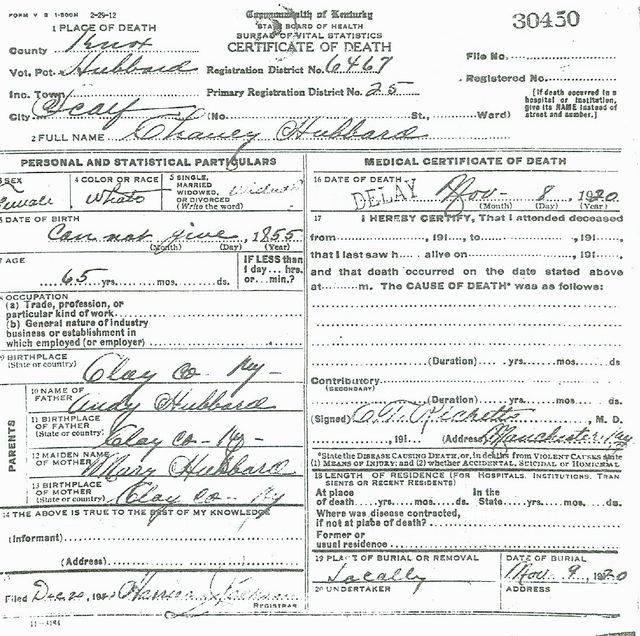 FORM V S 1-500M 2-29-12
30450
Commonwealth of Kentucky
STATE BOARD OF HEALTH
BUREAU OF VITAL STATISTICS
CERTIFICATE OF DEATH
1 PLACE OF DEATH
County Knox
Vot. Pct. Hubbard Registration District No. 6467 File No.
Inc. Town Primary Registration District No. 25 Registered No.
City Scalf (No. St., Ward) [If death occurred in a hospital or institution, give its NAME instead of street and number.]
2 FULL NAME Chaney Hubbard
PERSONAL AND STATISTICAL PARTICULARS
SEX Female 4 COLOR OR RACE White 5 SINGLE, MARRIED WIDOWED, OR DIVORCED (Write the word) Widowed
DATE OF BIRTH
Can not give, 1855
(Month) (Day) (Year)
AGE 65 yrs. mos. ds. IF LESS than 1 day... hrs. or min.?
OCCUPATION
(a) Trade, profession, or
particular kind of work
(b) General nature of industry
business or establishment in
which employed (or employer)
9 BIRTHPLACE
(State or country) Clay Co Ky -
PARENTS
10 NAME OF
FATHER Andy Hubbard
11 BIRTHPLACE
OF FATHER
(State or country) Clay Co - Ky -
12 MAIDEN NAME
OF MOTHER Mary Hubbard
13 BIRTHPLACE
OF MOTHER
(State or country) Clay Co - Ky
14 THE ABOVE IS TRUE TO THE BEST OF MY KNOWLEDGE
(Informant)
(Address)
Filed Dec 20, 19 Harrison
REGISTRAR
11-3184
MEDICAL CERTIFICATE OF DEATH
16 DATE OF DEATH
DELAY Nov - 8, 1920
(Month) (Day) (Year)
17 I HEREBY CERTIFY, That I attended deceased
from , 191 , to , 191 ,
that I last saw h alive on , 191 ,
and that death occurred on the date stated above
at m. The CAUSE OF DEATH* was as follows:
(Duration) yrs. mos. ds
Contributory
(SECONDARY)
(Duration) yrs. mos. ds
(Signed) C. T. Ricketts, M. D.
, 191 , (Address) Manchester, Ky
*State the DISEASE CAUSING DEATH, or, in deaths from VIOLENT CAUSES state
(1) MEANS OF INJURY; and (2) whether ACCIDENTAL, SUICIDAL or HOMICIDAL
18 LENGTH OF RESIDENCE (FOR HOSPITALS, INSTITUTIONS, TRAN
SIENTS OR RECENT RESIDENTS)
At place In the
of death yrs. mos. ds. State yrs. mos. ds.
Where was disease contracted,
if not at place of death?
Former or
usual residence
19 PLACE OF BURIAL OR REMOVAL DATE OF BURIAL
Locally Nov. 9, 1920
20 UNDERTAKER ADDRESS